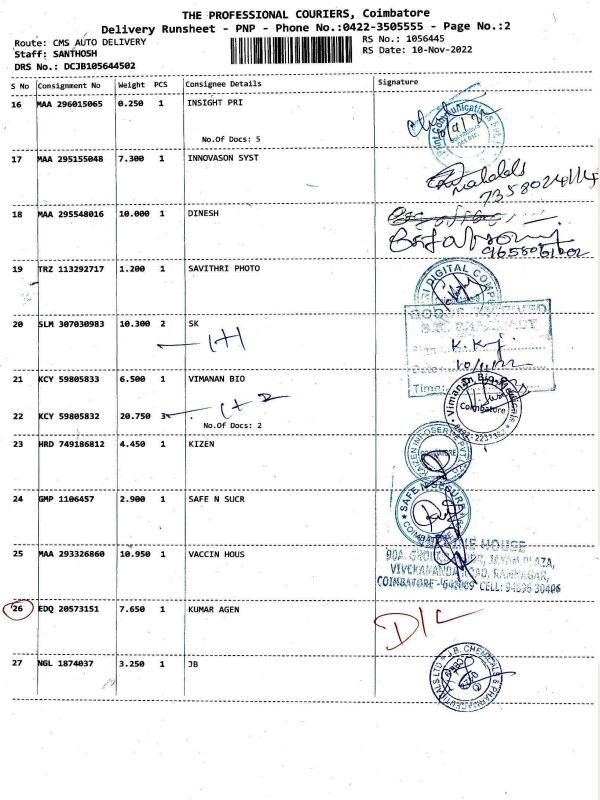 THE PROFESSIONAL COURIERS, Coimbatore
Delivery Runsheet - PNP - Phone No.:0422-3505555 - Page No.:2
Route: CMS AUTO DELIVERY
RS No.: 1056445
Staff: SANTHOSH
RS Date: 10-Nov-2022
DRS No.: DCJB105644502
S No Consignment No Weight PCS Consignee Details Signature
16 MAA 296015065 0.250 1 INSIGHT PRI
No.Of Docs: 5
17 MAA 295155048 7.300 1 INNOVASON SYST
7358024114
18 MAA 295548016 10.000 1 DINESH
19 TRZ 113292717 1.200 1 SAVITHRI PHOTO
DIGITAL
20 SLM 307030983 10.300 2 SK
1+1
K.K.J.
Date:
10/11/22
Time:
21 KCY 59805833 6.500 1 VIMANAN BIO
Vimanan Bio
Coimbatore
22 KCY 59805832 20.750 3
1+2
No.Of Docs: 2
23 HRD 749186812 4.450 1 KIZEN
24 GMP 1106457 2.900 1 SAFE N SUCR
SAFE N
COIMBATORE
25 MAA 293326860 10.950 1 VACCIN HOUS
HOUSE
JAYAM PLAZA,
VIVEKANANDA ROAD, RAMNAGAR,
COIMBATORE - 641009 CELL: 94896 30406
26 EDQ 20573151 7.650 1 KUMAR AGEN
D/L
27 NGL 1874037 3.250 1 JB
J.B. CHEMICALS &